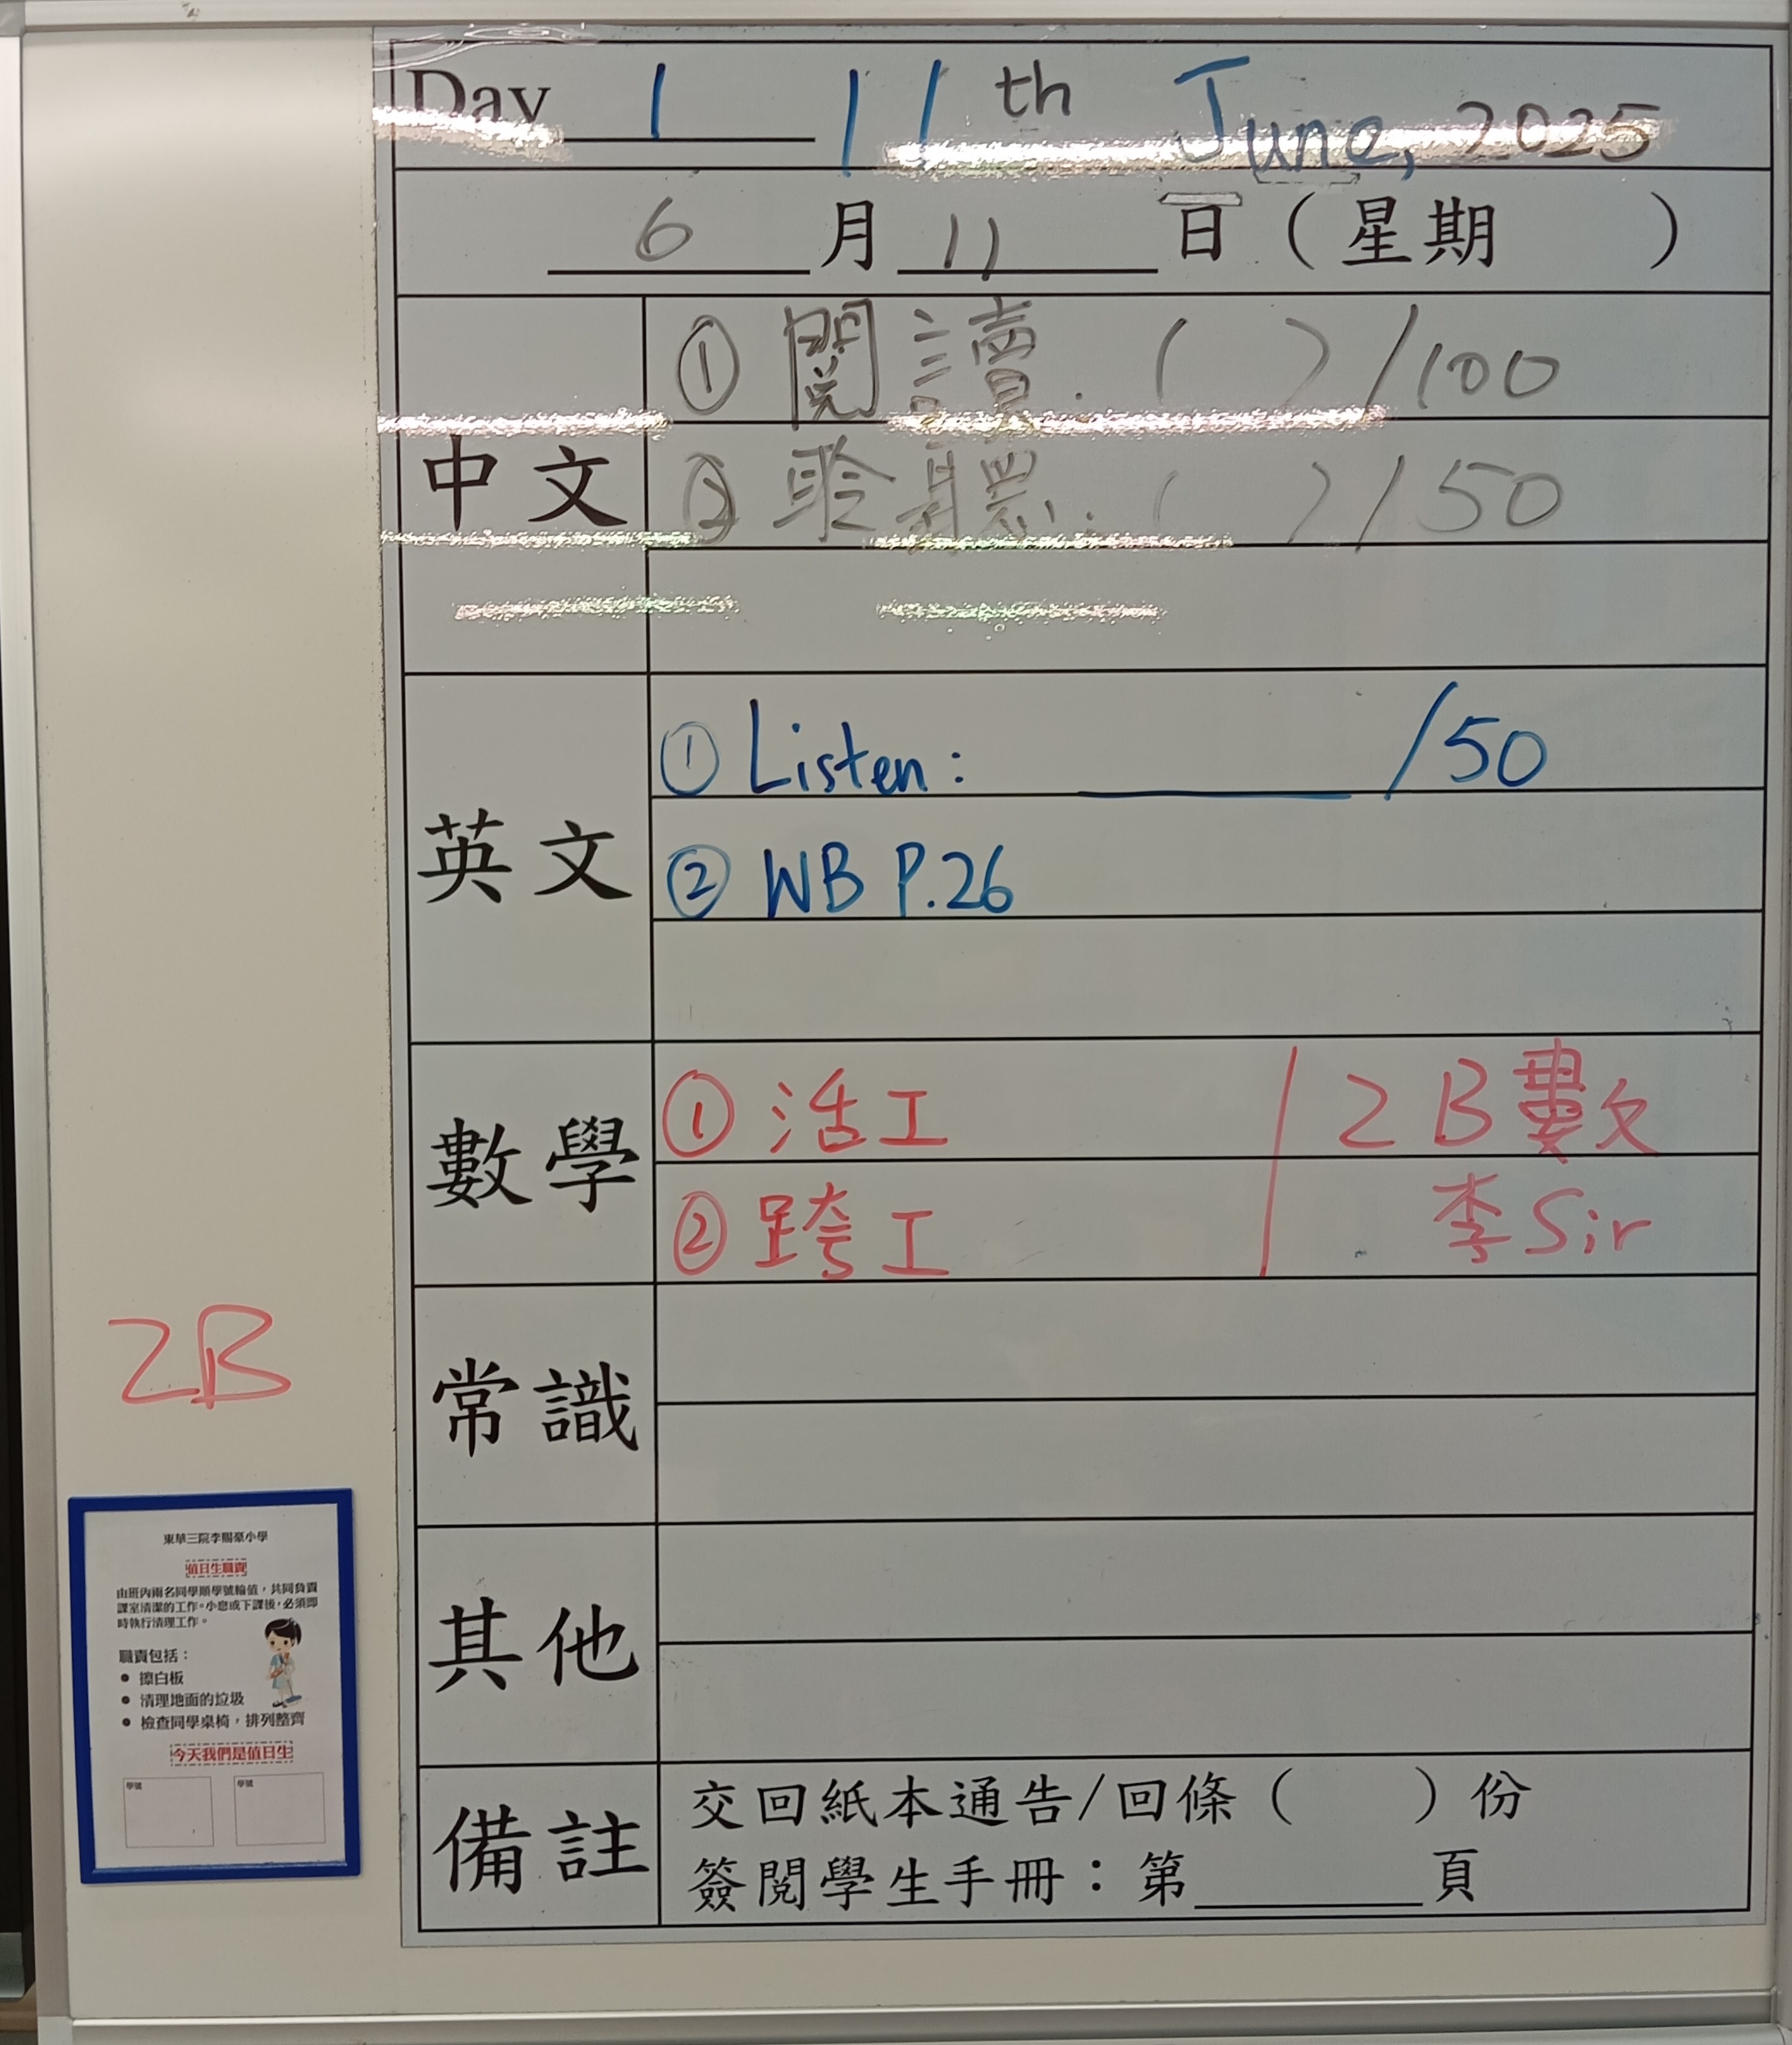 Day 1 11th June, 2025
6 月 11 日（星期　　）
中文
① 閱讀. (　　) /100
② 聆聽. (　　) /50
英文
① Listen: ______ /50
② WB P.26
數學
① 活工 / 2B數
② 跨工 / 李Sir
常識
其他
備註
交回紙本通告/回條（　　）份
簽閱學生手冊：第______頁
2B
東華三院李賜豪小學
值日生職責
由班內兩名同學順學號輪值，共同負責
課室清潔的工作。小息或下課後，必須即
時執行清理工作。
職責包括：
• 擦白板
• 清理地面的垃圾
• 檢查同學桌椅，排列整齊
今天我們是值日生
學號 學號